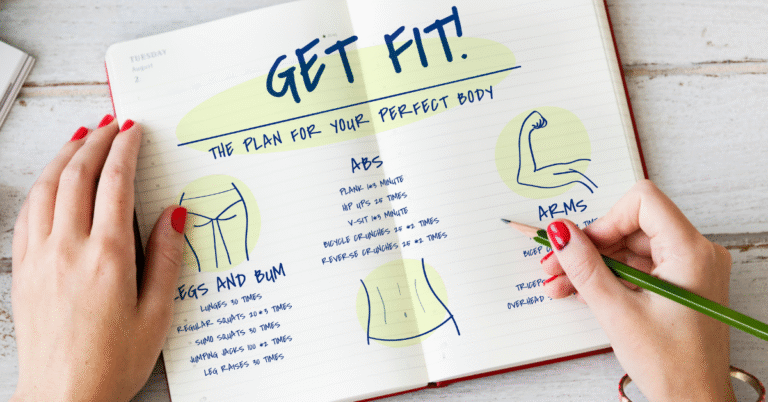 TUESDAY
August
2
GET FIT!
THE PLAN FOR YOUR PERFECT BODY
ABS
PLANK 1*3 MINUTE
HIP UPS 25 TIMES
V-SIT 1*3 MINUTE
BICYCLE CRUNCHES 25 *2 TIMES
REVERSE CRUNCHES 25 *2 TIMES
LEGS AND BUM
LUNGES 30 TIMES
REGULAR SQUATS 20*3 TIMES
SUMO SQUATS 30 TIMES
JUMPING JACKS 100 *2 TIMES
LEG RAISES 30 TIMES
ARMS
TIMES
BICEP
TRICEPS
OVERHEAD